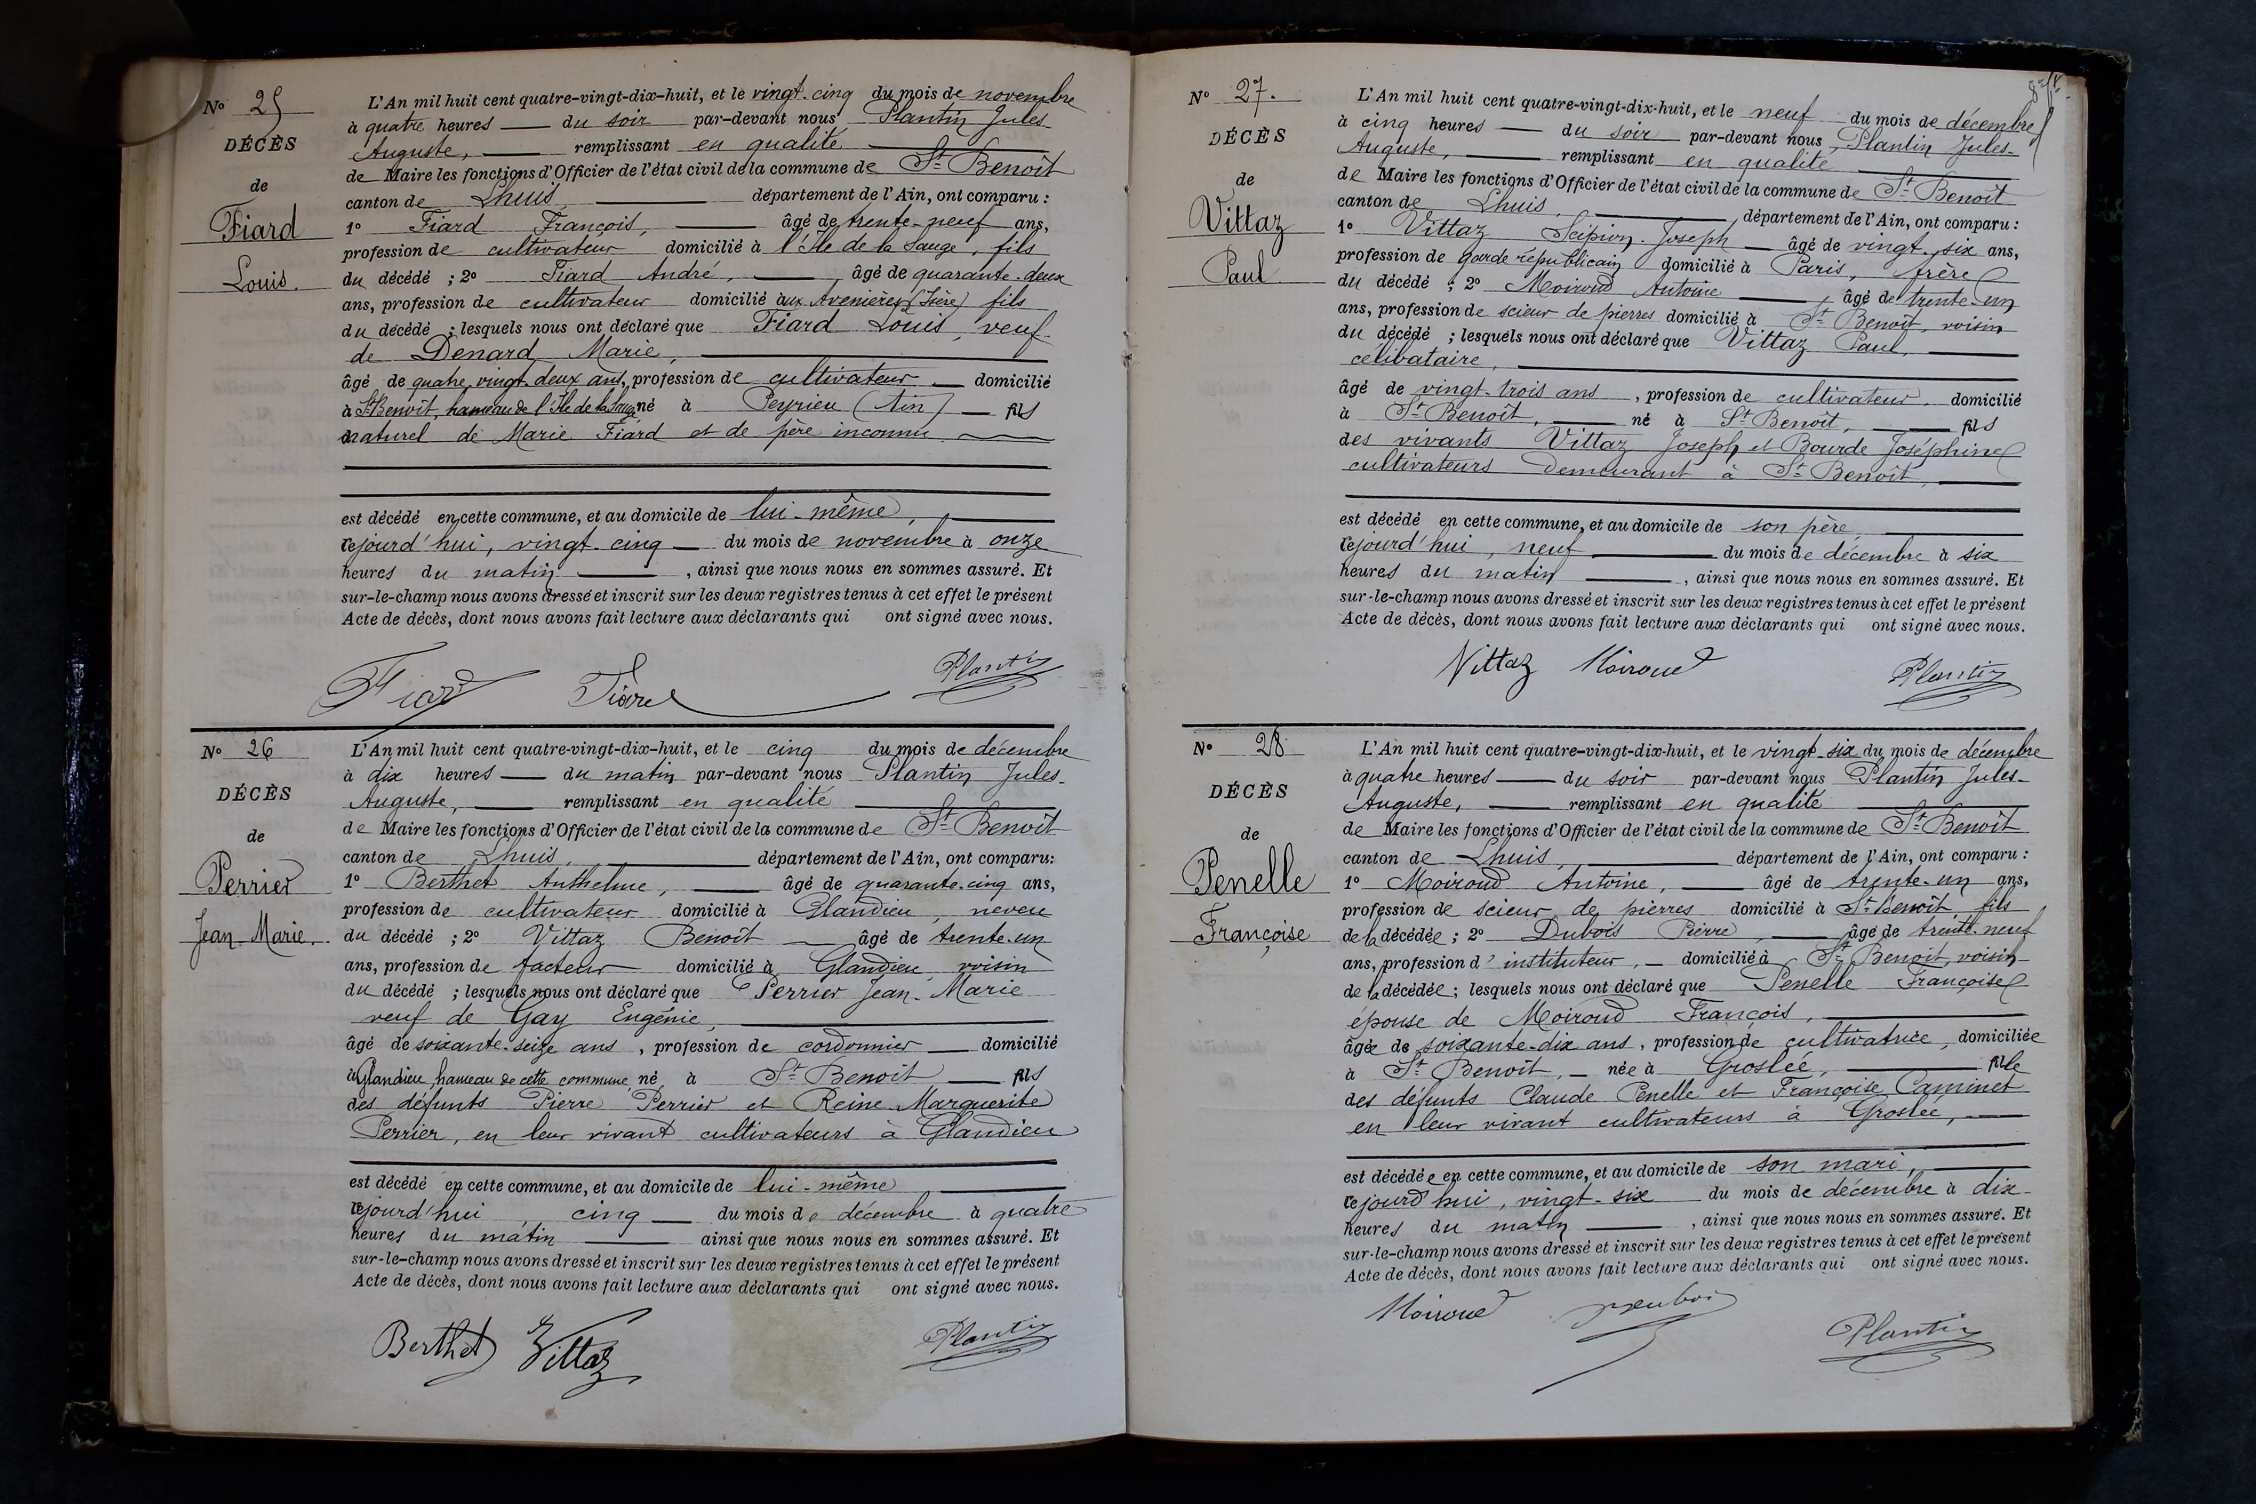 N° 25
DÉCÈS
de
Fiard
Louis.
L'An mil huit cent quatre-vingt-dix-huit, et le vingt-cinq du mois de novembre
à quatre heures du soir par-devant nous Plantin Jules-
Auguste, remplissant en qualité
de Maire les fonctions d'Officier de l'état civil de la commune de St-Benoît
canton de Lhuis, département de l'Ain, ont comparu :
1° Fiard François, âgé de trente-neuf ans,
profession de cultivateur domicilié à l'Ile de la Sauge, fils
du décédé ; 2° Fiard André, âgé de quarante-deux
ans, profession de cultivateur domicilié aux Avenières (Isère) fils
du décédé ; lesquels nous ont déclaré que Fiard Louis, veuf
de Denard Marie,
âgé de quatre-vingt-deux ans, profession de cultivateur domicilié
à St-Benoît, hameau de l'Ile de la Sauge né à Peyrieu (Ain) fils
naturel de Marie Fiard et de père inconnu.
est décédé en cette commune, et au domicile de lui-même,
cejourd'hui, vingt-cinq du mois de novembre à onze
heures du matin, ainsi que nous nous en sommes assuré. Et
sur-le-champ nous avons dressé et inscrit sur les deux registres tenus à cet effet le présent
Acte de décès, dont nous avons fait lecture aux déclarants qui ont signé avec nous.
Fiard Fiard Plantin
N° 26
DÉCÈS
de
Perrier
Jean-Marie.
L'An mil huit cent quatre-vingt-dix-huit, et le cinq du mois de décembre
à dix heures du matin par-devant nous Plantin Jules-
Auguste, remplissant en qualité
de Maire les fonctions d'Officier de l'état civil de la commune de St-Benoît
canton de Lhuis, département de l'Ain, ont comparu:
1° Berthet Anthelme, âgé de quarante-cinq ans,
profession de cultivateur domicilié à Glandieu, neveu
du décédé ; 2° Vittaz Benoît âgé de trente-un
ans, profession de facteur domicilié à Glandieu, voisin
du décédé ; lesquels nous ont déclaré que Perrier Jean-Marie
veuf de Gay Eugénie,
âgé de soixante-seize ans, profession de cordonnier domicilié
à Glandieu, hameau de cette commune, né à St-Benoît fils
des défunts Pierre Perrier et Reine Marguerite
Perrier, en leur vivant cultivateurs à Glandieu
est décédé en cette commune, et au domicile de lui-même
cejourd'hui, cinq du mois de décembre à quatre
heures du matin ainsi que nous nous en sommes assuré. Et
sur-le-champ nous avons dressé et inscrit sur les deux registres tenus à cet effet le présent
Acte de décès, dont nous avons fait lecture aux déclarants qui ont signé avec nous.
Berthet Vittaz Plantin
N° 27.
DÉCÈS
de
Vittaz
Paul
L'An mil huit cent quatre-vingt-dix-huit, et le neuf du mois de décembre
à cinq heures du soir par-devant nous Plantin Jules-
Auguste, remplissant en qualité
de Maire les fonctions d'Officier de l'état civil de la commune de St-Benoît
canton de Lhuis, département de l'Ain, ont comparu :
1° Vittaz Scipion-Joseph âgé de vingt-six ans,
profession de garde républicain domicilié à Paris, frère
du décédé ; 2° Moiroud Antoine, âgé de trente-un
ans, profession de scieur de pierres domicilié à St-Benoît, voisin
du décédé ; lesquels nous ont déclaré que Vittaz Paul,
célibataire,
âgé de vingt-trois ans, profession de cultivateur, domicilié
à St-Benoît, né à St-Benoît, fils
des vivants Vittaz Joseph et Bourde Joséphine
cultivateurs demeurant à St-Benoît,
est décédé en cette commune, et au domicile de son père,
cejourd'hui, neuf du mois de décembre à six
heures du matin, ainsi que nous nous en sommes assuré. Et
sur-le-champ nous avons dressé et inscrit sur les deux registres tenus à cet effet le présent
Acte de décès, dont nous avons fait lecture aux déclarants qui ont signé avec nous.
Vittaz Moiroud Plantin
N° 28
DÉCÈS
de
Penelle
Françoise
L'An mil huit cent quatre-vingt-dix-huit, et le vingt-six du mois de décembre
à quatre heures du soir par-devant nous Plantin Jules-
Auguste, remplissant en qualité
de Maire les fonctions d'Officier de l'état civil de la commune de St-Benoît
canton de Lhuis, département de l'Ain, ont comparu :
1° Moiroud Antoine, âgé de trente-un ans,
profession de scieur de pierres domicilié à St-Benoît, fils
de la décédée ; 2° Dubois Pierre, âgé de trente-neuf
ans, profession d'instituteur, domicilié à St-Benoît, voisin
de la décédée ; lesquels nous ont déclaré que Penelle Françoise
épouse de Moiroud François,
âgée de soixante-dix ans, profession de cultivatrice, domiciliée
à St-Benoît, née à Groslée, fille
des défunts Claude Penelle et Françoise Caminet
en leur vivant cultivateurs à Groslée,
est décédée en cette commune, et au domicile de son mari,
cejourd'hui, vingt-six du mois de décembre à dix
heures du matin, ainsi que nous nous en sommes assuré. Et
sur-le-champ nous avons dressé et inscrit sur les deux registres tenus à cet effet le présent
Acte de décès, dont nous avons fait lecture aux déclarants qui ont signé avec nous.
Moiroud Plantin